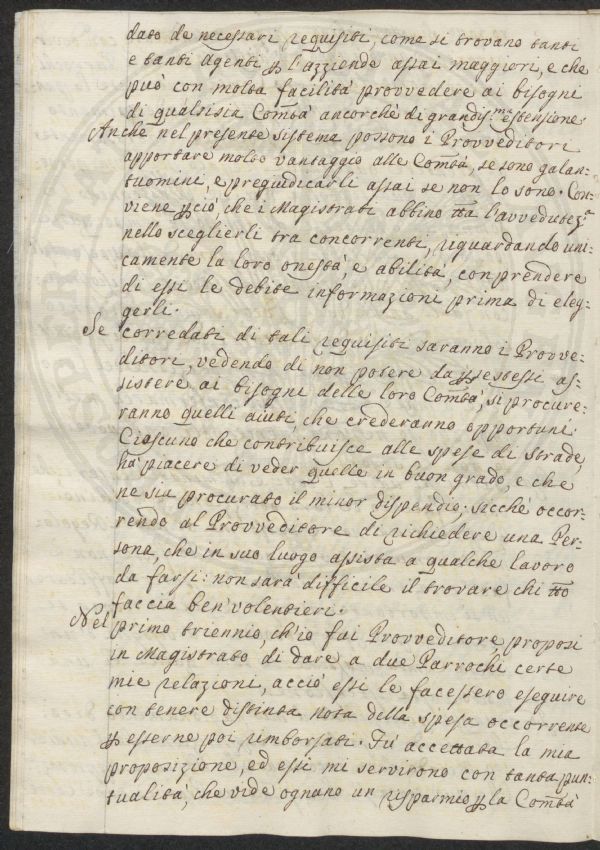 dato de necessari requisiti, come si trovano tanti
e tanti Agenti ꝑ l'azziende assai maggiori, e che
può con molta facilità provvedere ai bisogni
di qualsisia Com̃tà ancorchè di grandis.ma estensione.
Anche nel presente sistema possono i Provveditori
apportare molto vantaggio alle Com̃tà, se sono galan-
tuomini, e pregiudicarli assai se non lo sono. Con-
viene ꝑciò, che i Magistrati abbino tt̃a l'avvedutez.a
nello sceglierli tra concorrenti, riguardando uni-
camente la loro onestà, e abilità, con prendere
di essi le debite informazioni prima di eleg-
gerli.
Se corredati di tali requisiti saranno i Provve-
ditori, vedendo di non potere da ꝑ sestessi as-
sistere ai bisogni delle loro Com̃tà, si procure-
ranno quelli aiuti, che crederanno opportuni:
Ciascuno che contribuisce alle spese di strade,
ha piacere di veder quelle in buon grado, e che
ne sia procurato il minor dispendio; sicchè occor-
rendo al Provveditore di richiedere una Per-
sona, che in suo luogo assista a qualche lavoro
da farsi: non sarà difficile il trovare chi tt̃o
faccia ben volentieri.
Nel primo triennio, ch'io fui Provveditore, proposi
in Magistrato di dare a due Parrochi certe
mie relazioni, acciò essi le facessero eseguire
con tenere distinta nota della spesa occorrente
ꝑ esserne poi rimborsati. Fù accettata la mia
proposizione, ed essi mi servirono con tanta pun-
tualità, che vide ognuno un risparmio ꝑ la Com̃tà